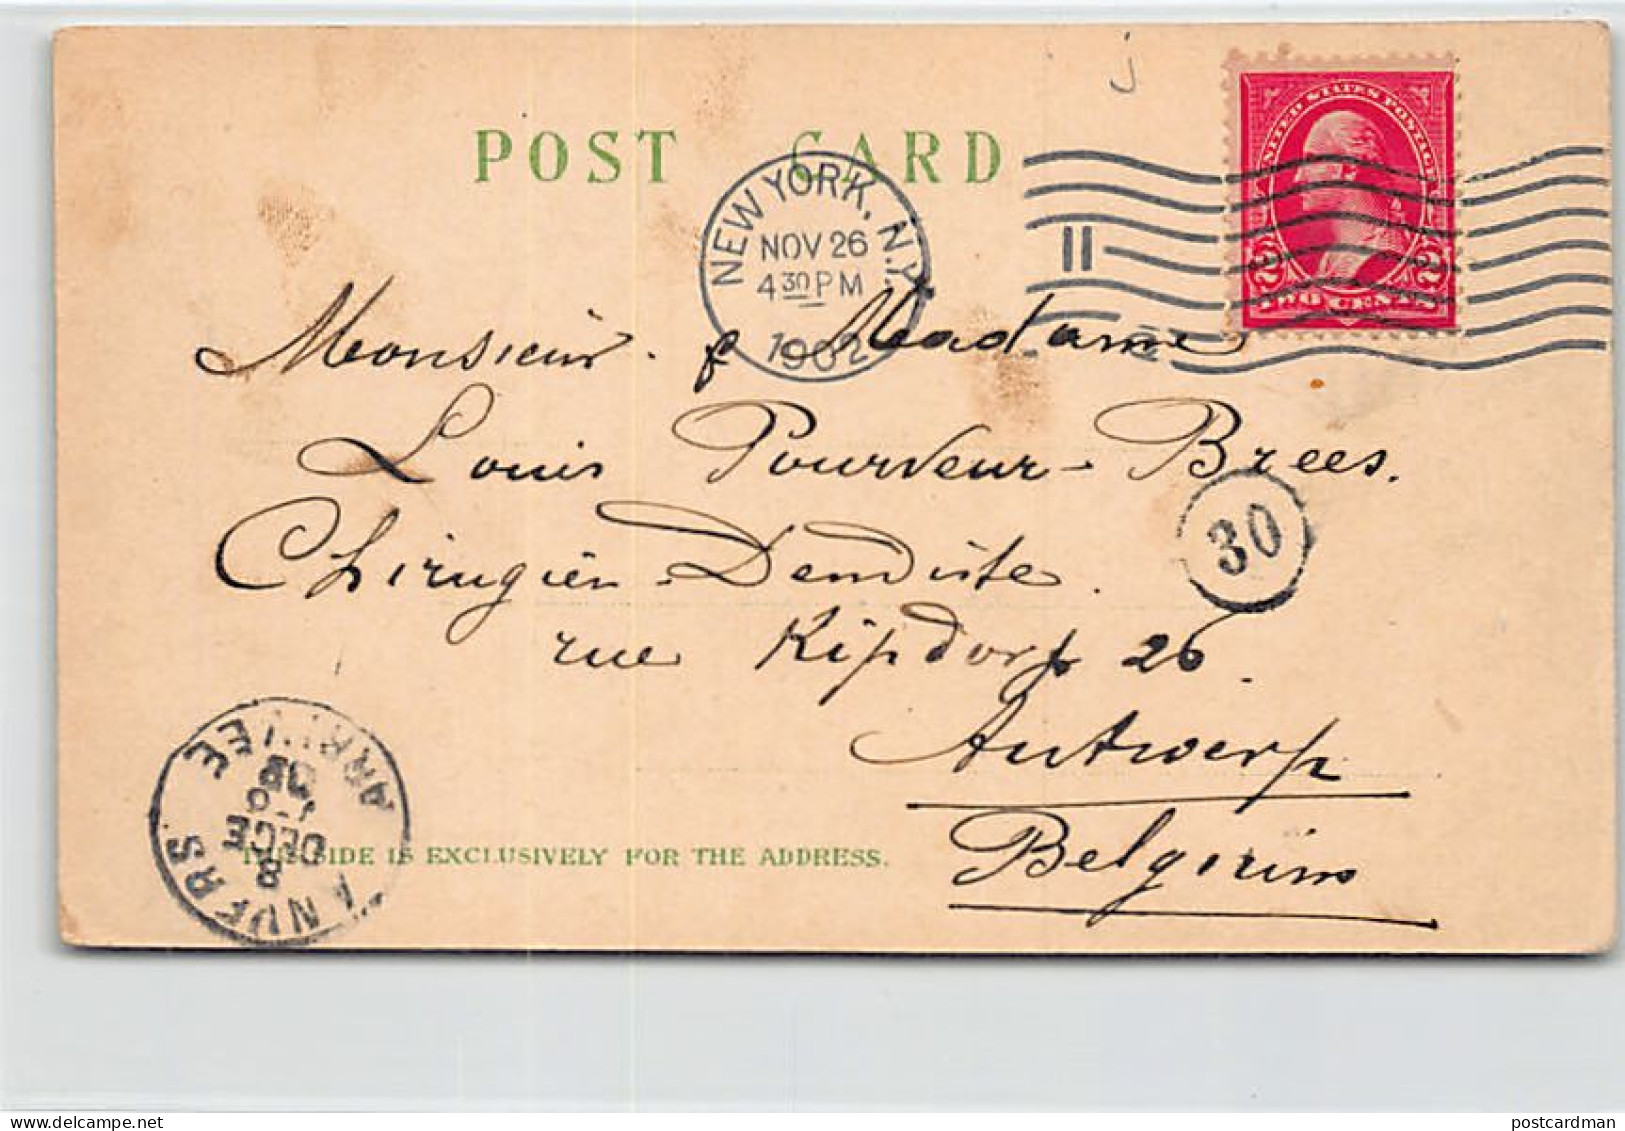 POST CARD
UNITED STATES POSTAGE
2 2
TWO CENTS
NEW YORK, N.Y.
NOV 26
4 30 PM
1902
11
Monsieur & Madame
Louis Pourveur-Brees.
Chirugien-Dendiste.
30
rue Kipdorp 26.
Antwerp
Belgium
ANVERS ARRIVEE
8
DECE
THIS SIDE IS EXCLUSIVELY FOR THE ADDRESS.
postcardman